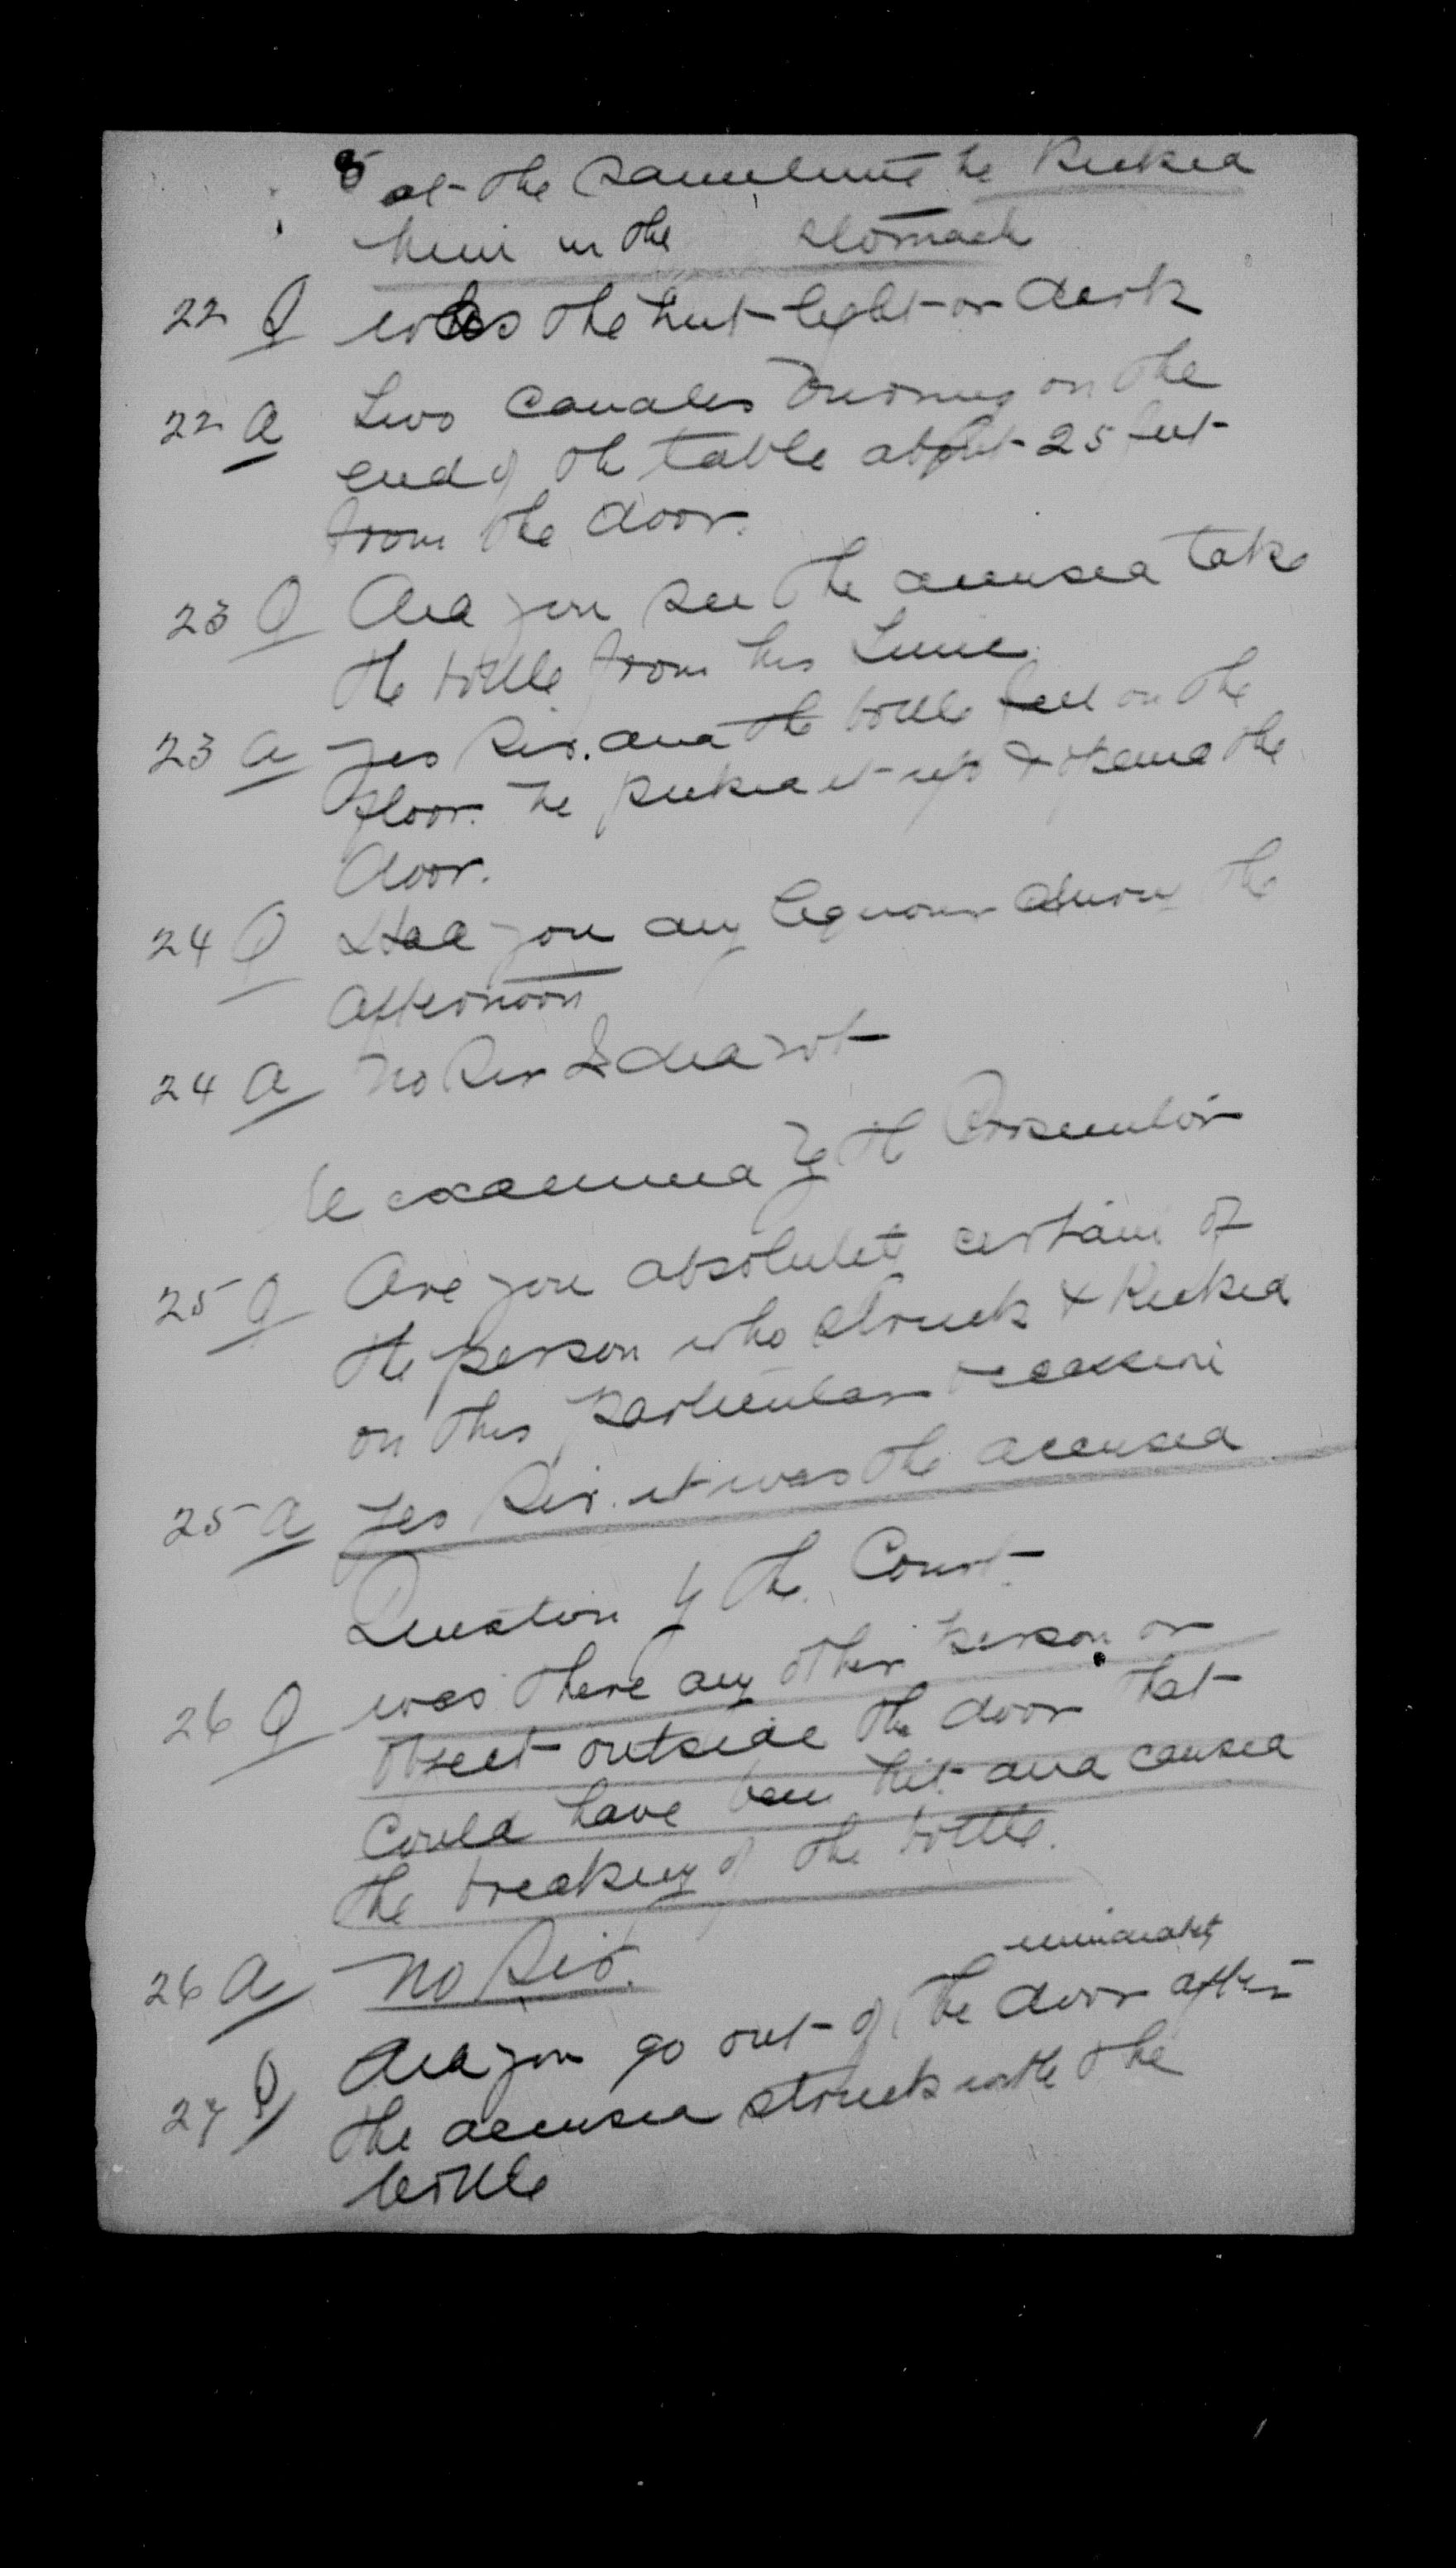 8 at the same time he kicked
him in the stomach
22 Q was the hut light or dark
22 A Two candles burning on the
end of the table about 25 feet
from the door.
23 Q Did you see the accused take
the bottle from his
23 A yes Sir. and the bottle fell on the
floor. he picked it up & opened the
door.
24 Q Had you any liquour during the
afternoon
24 A No Sir I did not
Re examined by the Prosecutor
25 Q Are you absolutely certain of
the person who struck & kicked
on this particular occassion
25 A yes Sir. it was the accused
Question by the Court
26 Q was there any other person or
object outside the door that
could have been hit and caused
the breaking of the bottle.
26 A No Sir.
immediately
27 Q Did you go out of the door after
the accused struck with the
bottle